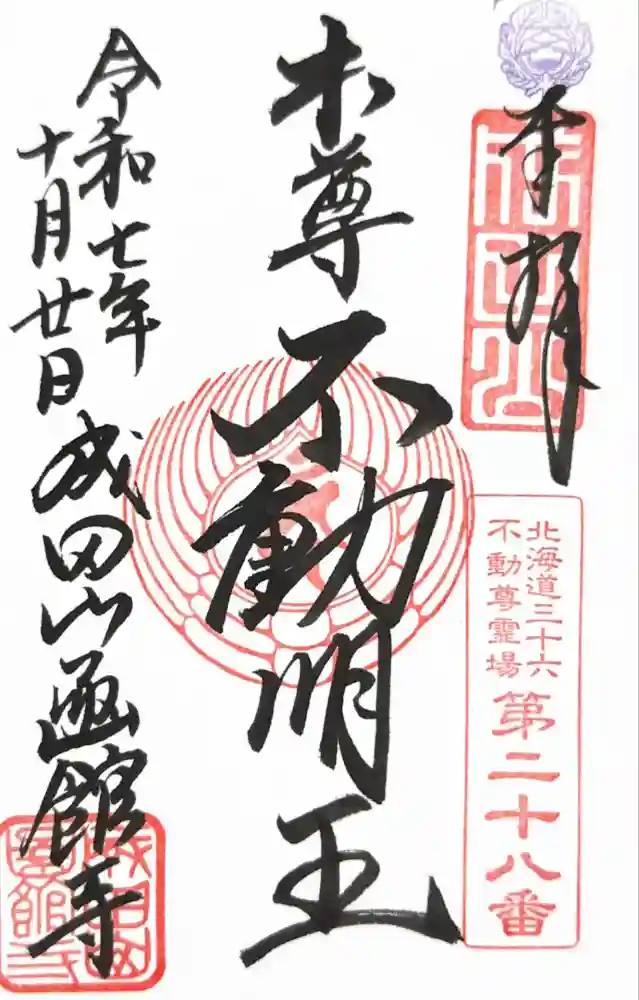 奉拝
北海道三十六
不動尊霊場
第二十八番
本尊
不動明王
令和七年
十月廿日
成田山函館寺